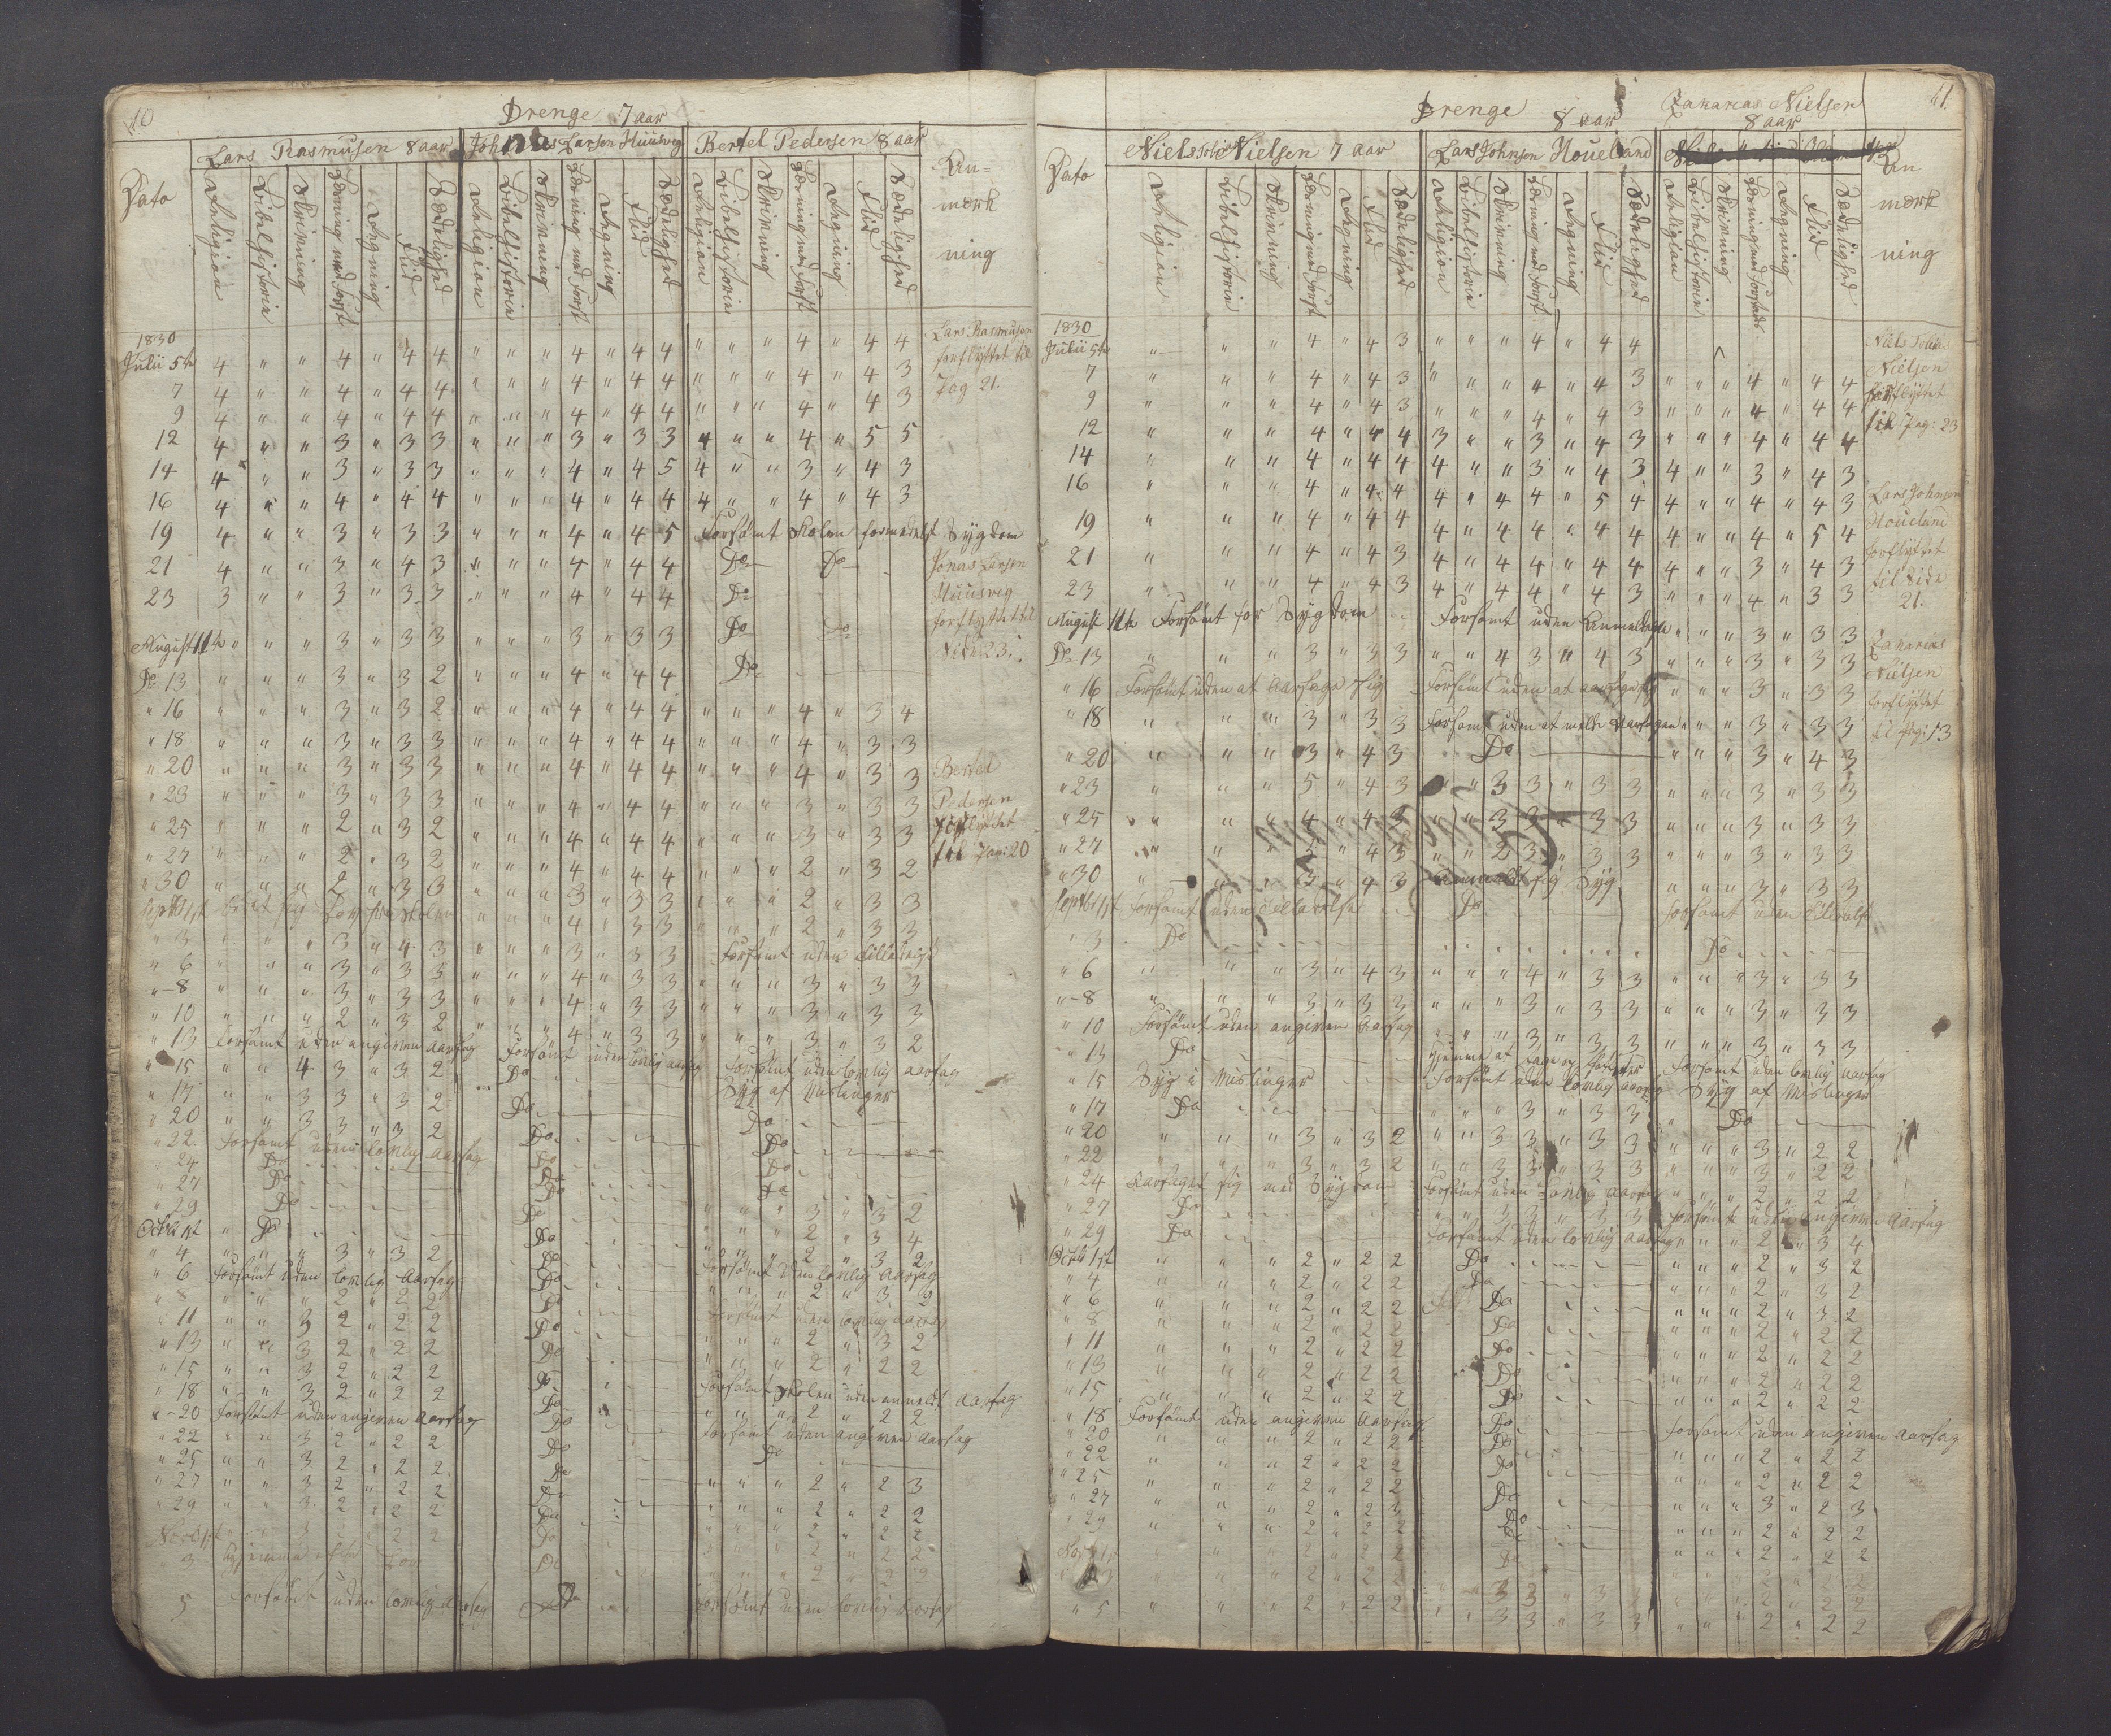 10
Drenge 7 aar
Lars Rasmusen 8 aar Jonas Larsen Huusveg Bertel Pedersen 8 aar
Dato Religion Bibelhistorie Skrivning Læsning med Forst Regning Flid Sædelighed Religion Bibelhistorie Skrivning Læsning med Forst Regning Flid Sædelighed Religion Bibelhistorie Skrivning Læsning med Forst Regning Flid Sædelighed An-
mærk
ning
1830
Julii 5te 4 " " 4 " 4 4 " " " 4 " 4 4 " " " 4 " 4 4
7 4 " " 4 " 4 4 " " " 4 " 4 4 " " " 4 " 4 3
9 4 " " 4 " 4 4 " " " 4 " 4 4 " " " 4 " 4 3
12 4 " " 3 " 3 3 " " " 3 " 3 3 4 " " 4 " 5 5
14 4 " " 3 " 3 3 " " " 4 " 4 5 4 " " 3 " 4 3
16 4 " " 4 " 4 4 " " " 4 " 4 4 4 " " 4 " 4 3
19 4 " " 3 " 3 3 " " " 4 " 4 5 Forsömt Skolen formedelst Sygdom
21 4 " " 3 " 4 3 " " " 4 " 4 4 Do Do
23 3 " " 3 " 3 3 " " " 4 " 4 4 Do
August 11te " " " 3 " 3 3 " " " 3 " 3 3 Do Do
Do 13 " " " 3 " 3 2 " " " 4 " 4 4 Do
" 16 " " " 3 " 3 2 " " " 4 " 4 4 " " " 4 " 3 4
" 18 " " " 3 " 3 3 " " " 4 " 4 4 " " " 4 " 3 3
" 20 " " " 3 " 3 3 " " " 4 " 4 4 " " " 4 " 3 3
" 23 " " " 3 " 3 3 " " " 4 " 4 4 " " " 3 " 3 3
" 25 " " " 2 " 3 2 " " " 4 " 4 4 " " " 3 " 3 3
" 27 " " " 2 " 3 2 " " " 4 " 4 4 " " " 2 " 3 2
" 30 " " " 2 " 3 3 " " " 3 " 3 3 " " " 2 " 3 3
Septbr 1st " " " 4 " 3 3 " " " 2 " 3 3
" 3 " " " 3 " 4 3 " " " 3 " 3 3 Forsömt uden Tilladelse
" 6 " " " 3 " 3 3 " " " 4 " 3 3 " " " 3 " 3 3
" 8 " " " 3 " 3 3 " " " 4 " 3 3 " " " 3 " 3 3
" 10 " " " 2 " 3 2 " " " 4 " 3 3 " " " 3 " 3 2
" 13 Forsömt uden angiven Aarsag Forsömt uden lovlig aarsag Forsömt uden lovlig aarsag
" 15 " " 4 3 " 3 2 Do Syg af Mislinger
" 17 " " 3 3 " 3 2 Do Do
" 20 " " 3 3 " 3 2 Do Do
" 22 Forsömt uden lovlig Aarsag Do Do
" 24 Do Do Do
" 27 Do Do
" 29 Do Do " " " 3 " 3 2
Octbr 1st " Do Do " " " 2 " 3 4
" 4 " " " 3 " 3 2 Do " " " 2 " 3 2
" 6 Forsömt uden lovlig Aarsag Do Forsömt uden lovlig Aarsag
" 8 " " " 2 " 2 2 Do " " " 2 " 3 2
" 11 " " 3 2 " 2 2 Do Forsömt uden lovlig aarsag
" 13 " " 3 2 " 2 2 Do " " " 2 " 3 2
" 15 " " 3 2 " 2 2 Do " " " 2 " 2 2
" 18 " " 3 2 " 2 2 Do Forsömt Skolen uden anmeldt aarsag
" 20 Forsömt uden angiven Aarsag Do " " " 2 " 2 2
" 22 " " 3 2 " 2 2 Do Forsömt uden angiven aarsag
" 25 " " 3 2 " 2 2 Do Do
" 27 " " 3 2 " 2 2 Do " " " 2 " 2 3
" 29 " " 3 2 " 2 2 Do " " " 2 " 2 2
" 3 Hjemme Do " " " 2 " 2 2
5 Forsömt uden lovlig Aarsag Do Forsömt uden lovlig Aarsag
Lars Rasmusen
forflyttet til
Pag 21.
Jonas Larsen
Huusveg
forflyttet til
Side 23.
Bertel
Pedersen
forflyttet
til Pag: 20
11
Drenge 8 aar Zakarias Nielsen
8 aar
Niels Tobias Nielsen 7 aar Lars Johnsen Houeland
Dato Religion Bibelhistorie Skrivning Læsning med Forst Regning Flid Sædelighed Religion Bibelhistorie Skrivning Læsning med Forst Regning Flid Sædelighed Religion Bibelhistorien Skrivning Læsning med Forstands Regning Flid Sædelighed An
mærk
ning
1830
Julii 5te " " " 4 " 4 3 " " " 4 " 4 4
7 " " " 4 " 4 3 " " " 4 " 4 3 " " " 4 " 4 4
9 " " " 4 " 4 3 " " " 4 " 4 3 " " " 4 " 4 4
12 " " " 4 " 4 4 3 " " 3 " 4 3 " " " 4 " 4 4
14 " " " 4 " 4 4 4 " " 3 " 4 3 4 " " 3 " 4 3
16 " " " 4 " 4 4 4 " 4 4 " 5 4 4 " " 4 " 4 3
19 " " " 4 " 4 4 4 " 4 4 " 4 4 4 " " 4 " 5 4
21 " " " 4 " 4 3 4 " 4 4 " 4 4 4 " " 3 " 4 3
23 " " " 4 " 4 3 4 " 4 4 " 4 3 " " " 4 " 3 3
August 11te Forsömt for Sygdom Forsömt uden Anmeldelse " " " 3 " 3 3
Do 13 " " " 3 " 3 3 " " 4 3 " 4 3 " " " 3 " 3 3
" 16 Forsömt uden at Aarsage sig Forsömt uden at aarsage sig " " " 3 " 3 3
" 18 " " " 3 " 3 3 Forsömt uden at melde Aarsagen " " " 3 " 3 3
" 20 " " " 3 " 4 3 Do " " " 3 " 4 3
" 23 " " " 5 " 4 3 " " 3 3 " 3 3 " " " 3 " 3 3
" 25 " " " 4 " 4 3 " " 3 3 " 3 3 " " " 3 " 3 3
" 27 " " " " 4 3 " " 2 3 " 3 3 " " " 3 " 3 3
" 30 " " " 3 " 4 3 Anmeldt sig Syg " " " 3 " 3 3
Septbr 1st Forsömt uden Tilladelse Do Forsömt uden Tilladelse
" 3 Do Do
" 6 " " " 3 " 4 3 " " " 4 " 3 3 " " " 3 " 3 3
" 8 " " " 3 " 3 3 " " " 3 " 3 3 " " " 3 " 3 3
" 10 Forsömt uden angiven Aarsag " " " 3 " 3 3 " " " 3 " 3 3
" 13 Do Hjemme at Forsömt uden lovlig Aarsag
" 15 Syg i Mislinger Forsömt uden lovlig aarsag Syg af Mislinger
" 17 Do " " " 3 " 3 3 Do
" 20 " " " 3 " 3 2 " " 3 3 " 3 3 " " " 3 " 2 2
" 22 " " " 3 " 3 2 " " 3 3 " 3 3 " " " 3 " 2 2
" 24 Aarsaget sig med Sygdom Forsömt uden Lovlig Aarsag " " " 2 " 2 2
" 27 Do " " 3 3 " 3 3 Forsömt uden angiven Aarsag
" 29 Do Forsömt uden lovlig Aarsag " " " 2 " 3 4
Octbr 1st " " " 2 " 2 2 Do " " " 2 " 3 2
" 4 " " " 2 " 2 2 Do " " " 2 " 3 2
" 6 " " " 2 " 2 2 Do " " " 2 " 3 2
" 8 " " " 2 " 2 2 Do " " " 2 " 2 2
" 11 " " " 2 " 2 2 Do " " " 2 " 2 2
" 13 " " " 2 " 2 2 Do " " " 2 " 2 2
" 15 " " " 2 " 2 2 Do " " " 2 " 2 2
" 18 Forsömt uden angiven Aarsag Do Forsömt uden angiven Aarsag
" 20 " " " 2 " 2 2 Do " " " 2 " 2 2
" 22 " " " 2 " 2 2 Do " " " 2 " 2 2
" 25 " " " 2 " 2 2 Do " " " 3 " 2 3
" 27 " " " 2 " 2 3 Do " " " 2 " 2 2
" 29 " " " 2 " 2 2 Do " " " 2 " 2 2
" 5 " " " 2 " 2 2 " " 3 3 " 3 3 " " " 2 " 2 2
Niels Tobias
Nielsen
forflyttet
til Pag: 23
Lars Johnsen
Houeland
forflyttet
til Side
21.
Zakarias
Nielsen
forflyttet
til Pag: 13